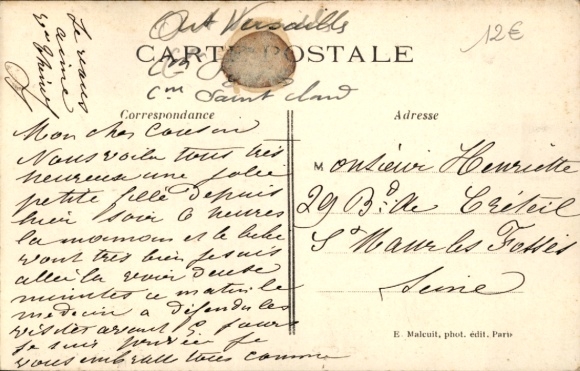 Art Versailles
CARTE POSTALE
Con
Cne Saint Cloud
12€
Je vous
aime
Correspondance
Adresse
Mon cher Cousin
Nous voila tous très
heureuse une jolie
petite fille depuis
hier soir 6 heures
la maman et le bebe
vont très bien je suis
allée la voir deuse
minutes ce matin le
medecin a défendu les
visites avant 5 jours
je suis
vous embrasse tous comme
Monsieur Henriette
29 Bd de Créteil
St Maur les Fossés
Seine
E. Malcuit, phot. édit. Paris